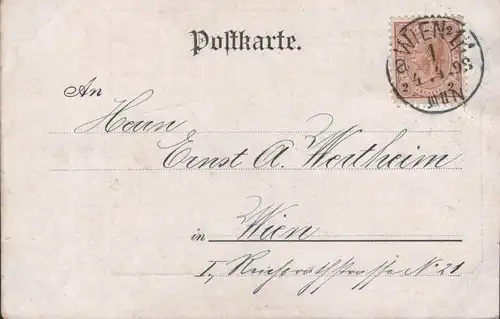 Postkarte.
WIEN 1/1
1
4.4.98
An
Herrn
Ernst A. Wertheim
in Wien
I., Reichsrathstrasse No 21